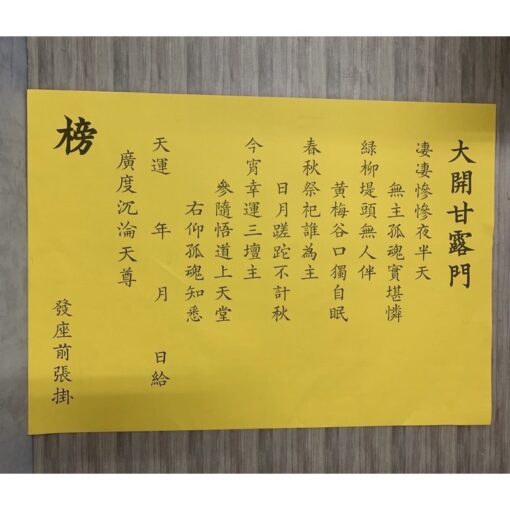 大開甘露門
凄凄慘慘夜半天
無主孤魂實堪憐
緑柳堤頭無人伴
黃梅谷口獨自眠
春秋祭祀誰為主
日月蹉跎不計秋
今宵幸運三壇主
參隨悟道上天堂
右仰孤魂知悉
天運 年 月 日給
廣度沉淪天尊
榜
發座前張掛